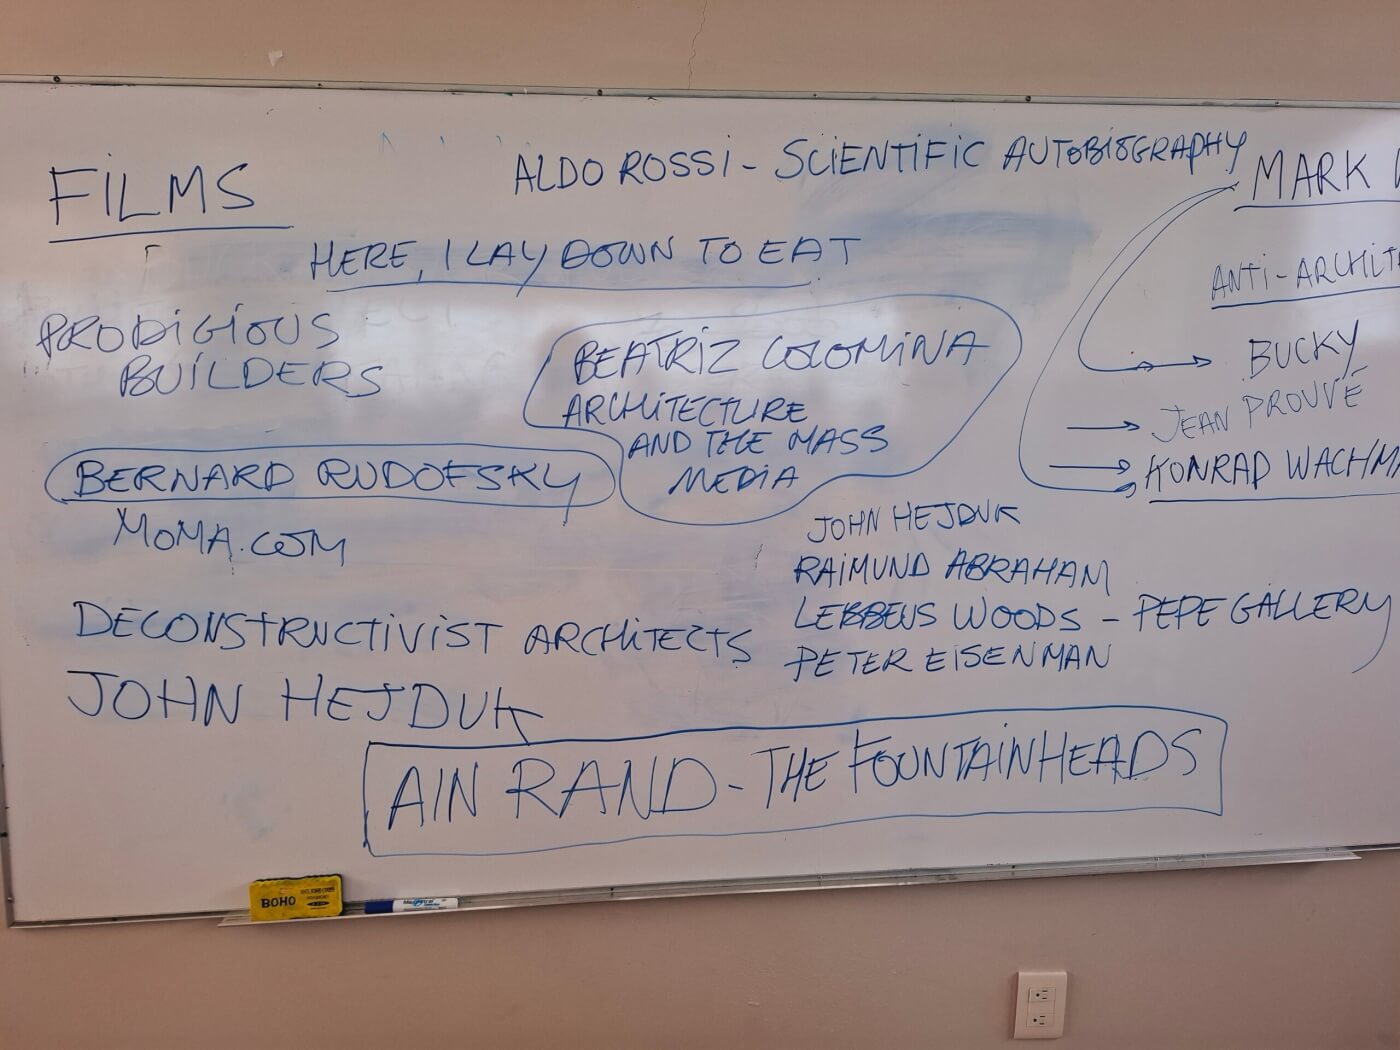 FILMS
ALDO ROSSI - SCIENTIFIC AUTOBIOGRAPHY
HERE, I LAY DOWN TO EAT
PRODIGIOUS
BUILDERS
BEATRIZ COLOMINA
ARCHITECTURE
AND THE MASS
MEDIA
BERNARD RUDOFSKY
MOMA.COM
DECONSTRUCTIVIST ARCHITECTS
JOHN HEJDUK
MARK
ANTI-ARCHIT
BUCKY
JEAN PROUVÉ
KONRAD WACHM
JOHN HEJDUK
RAIMUND ABRAHAM
LEBBEUS WOODS - PEPE GALLERY
PETER EISENMAN
AIN RAND - THE FOUNTAINHEADS
BOHO